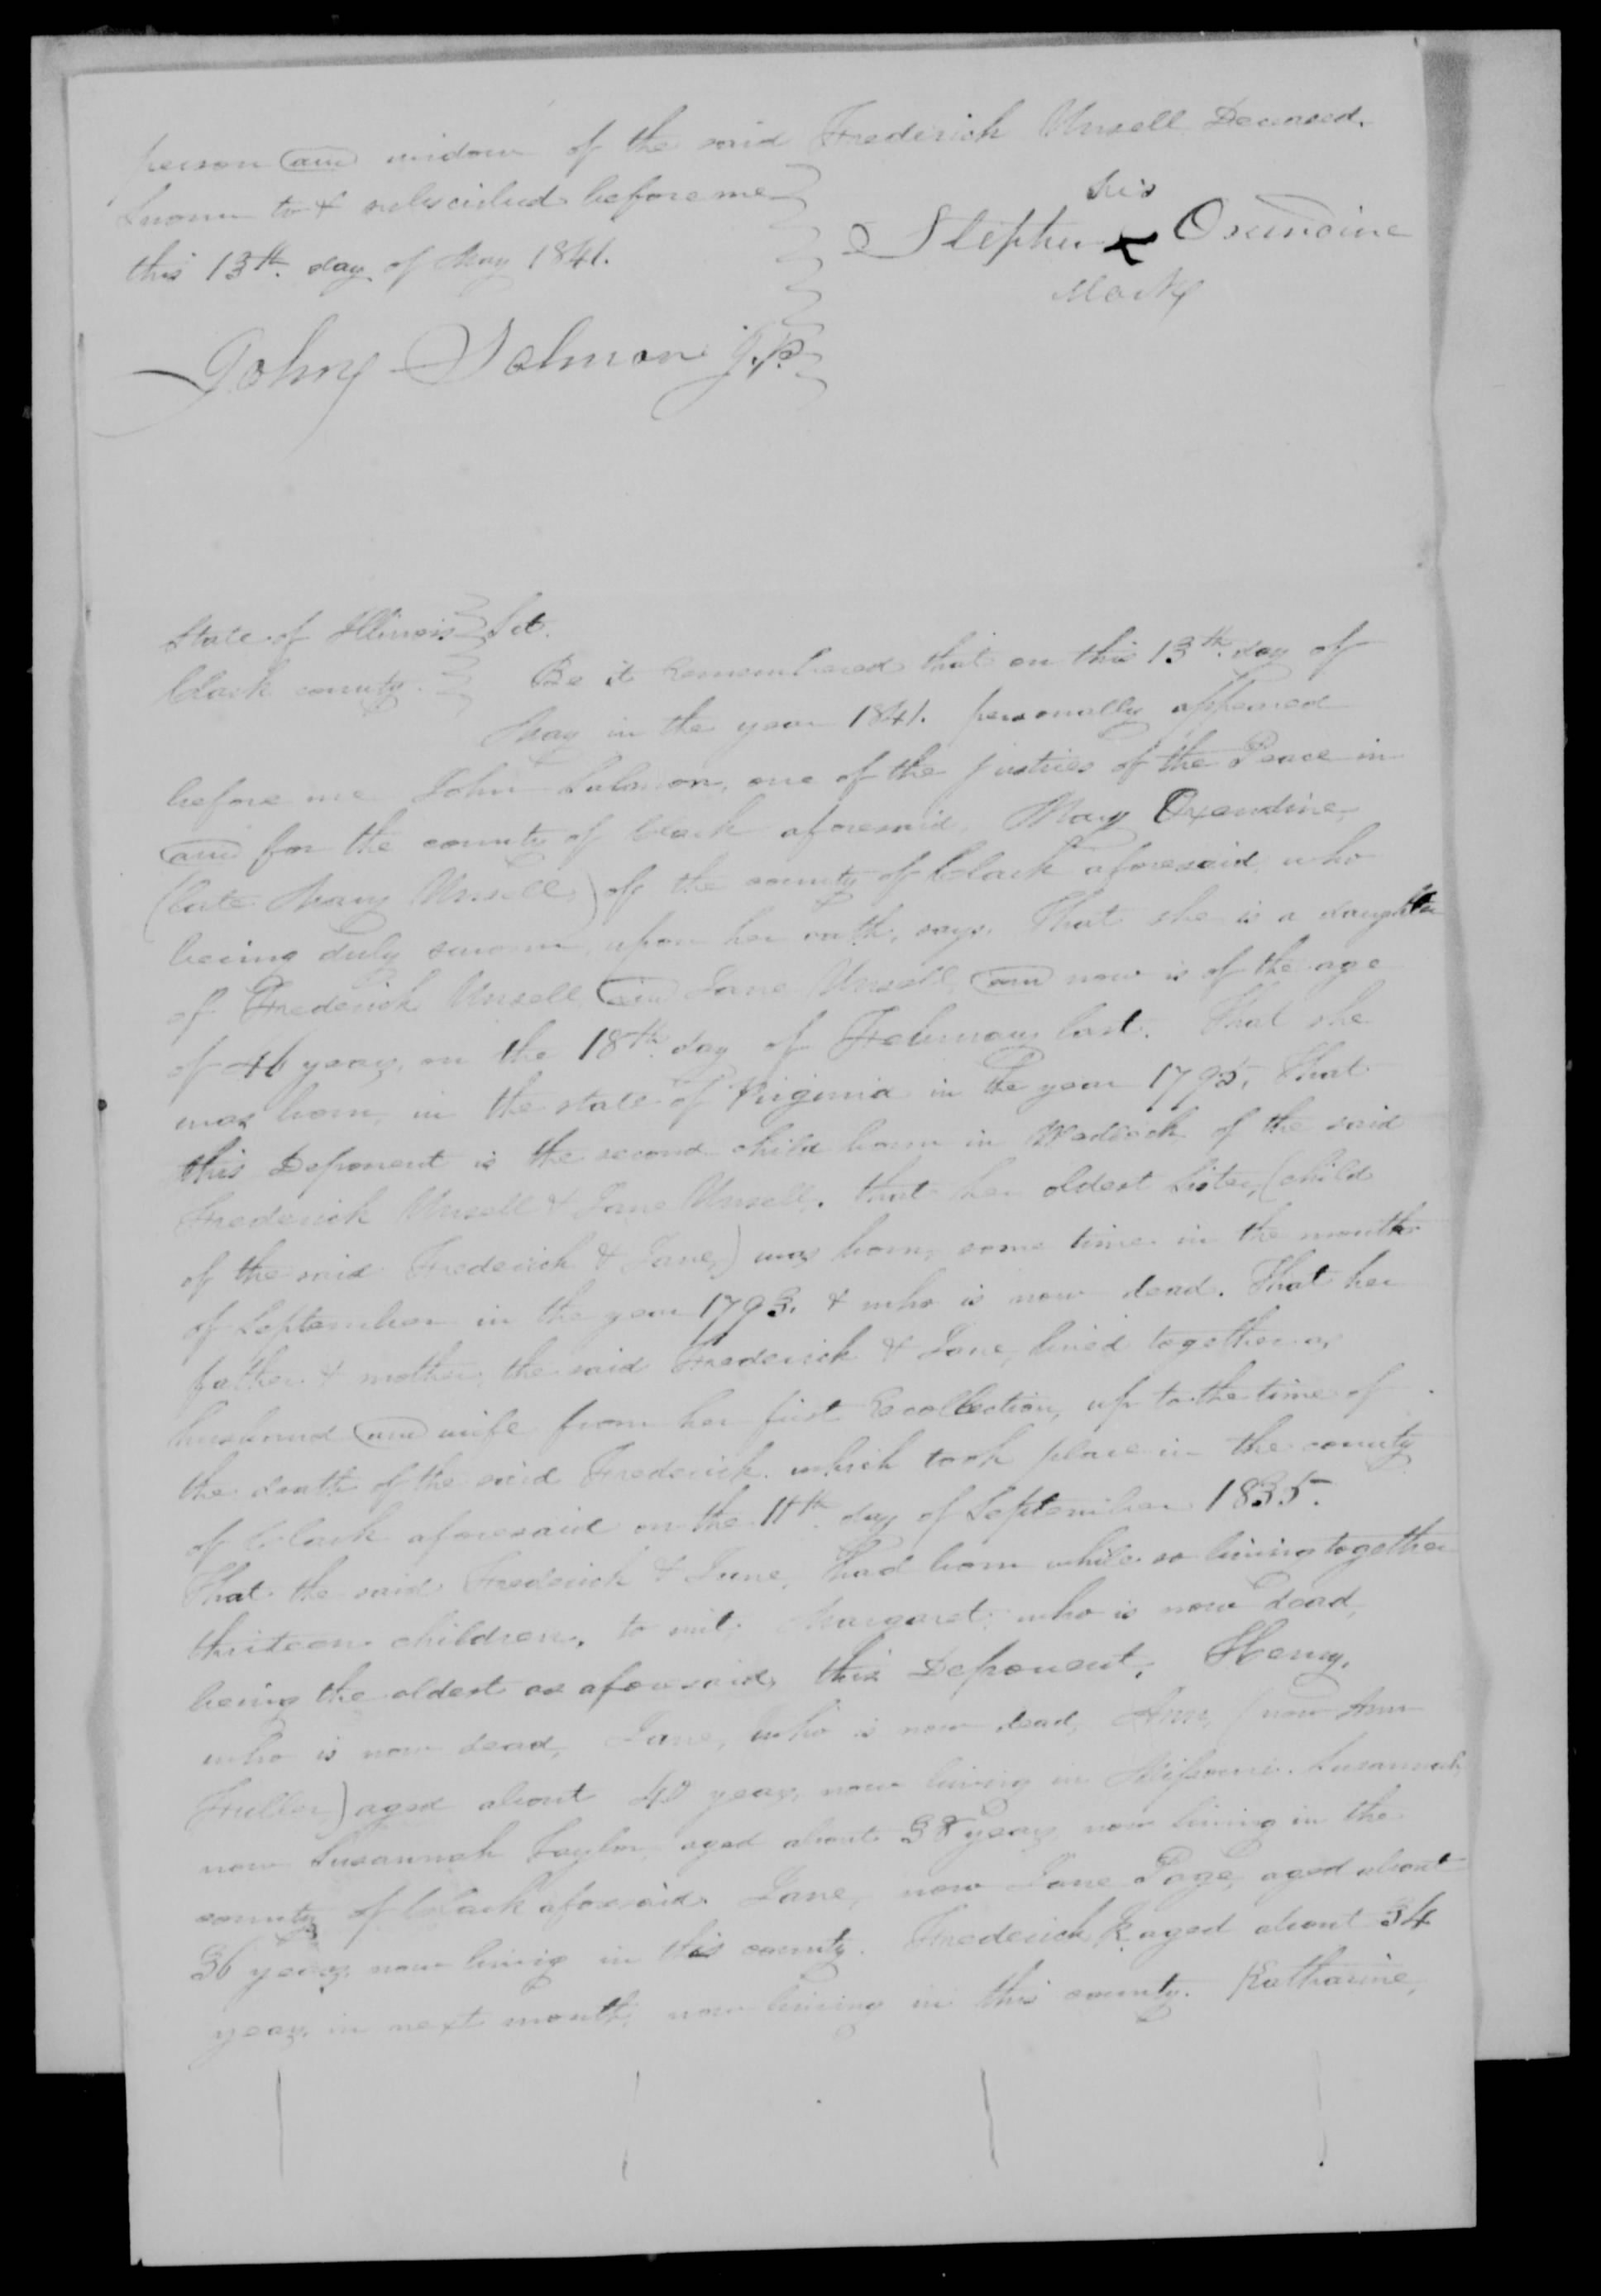 person and widow of the said Frederick Unsell Deceased.
Sworn to & subscribed before me
this 13th. day of May 1841.
his
Stephen X Oxendine
Mark
John Salmon J.P.
State of Illinois Sct.
Clark county.
Be it Remembered that on this 13th. day of
May in the year 1841. personally appeared
before me John Salmon, one of the justices of the Peace in
and for the county of Clark aforesaid, Mary Oxendine,
(late Mary Unsell,) of the county of Clark aforesaid, who
being duly sworn, upon her oath, says, That she is a daughter
of Frederick Unsell and Jane Unsell, and now is of the age
of 46 years, on the 18th. day of February last. That she
was born, in the state of Virginia in the year 1795, That
this Deponent is the second child born in Wedlock of the said
Frederick Unsell & Jane Unsell. that her oldest Sister, (child
of the said Frederick & Jane,) was born, some time in the month
of September in the year 1793. & who is now dead. That her
father & mother, the said Frederick & Jane, lived together as
husband and wife from her first Recollection, up to the time of
the death of the said Frederick. which took place in the county
of Clark aforesaid on the 11th. day of September 1835.
That the said Frederick & Jane, had born while so living together
thirteen children, to wit, Margaret, who is now dead,
being the oldest as aforesaid, this Deponent, Henry,
who is now dead, Jane, who is now dead, Ann, (now Ann
Fuller) aged about 40 years, now living in Missouri. Susannah,
now Susannah Taylor, aged about 38 years now living in the
county of Clark aforesaid. Jane, now Jane Page, aged about
36 years, now living in this county. Frederick R. aged about 34
years, in next month, now living in this county. Katharine,